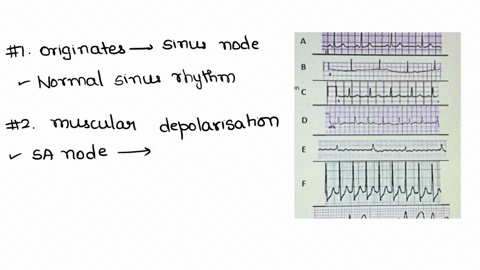 #1. originates → sinus node
✓ Normal sinus rhythm
#2. muscular depolarisation
✓ SA node →
A
B
C
D
E
F